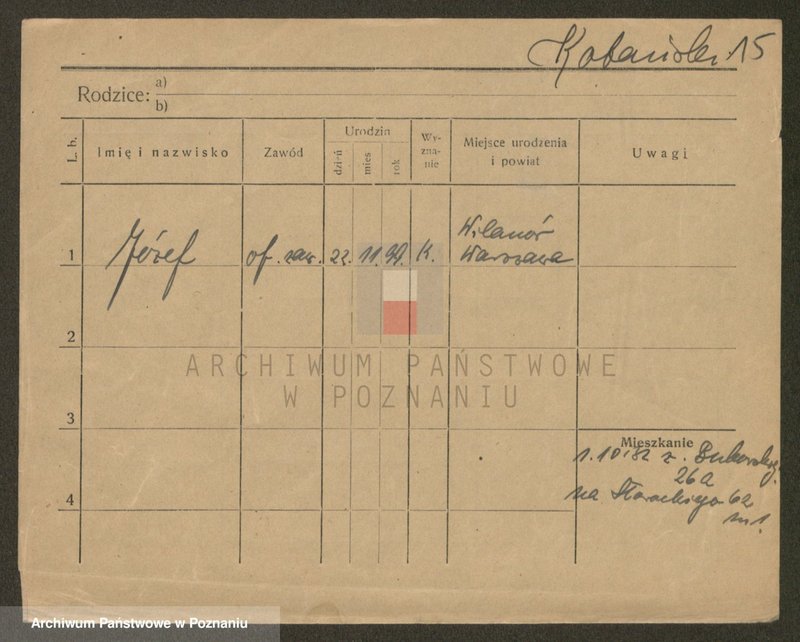 Kobański 15
Rodzice: a)
b)
L. b.
Imię i nazwisko
Zawód
Urodzin
dzień
mies
rok
Wy-
zna-
nie
Miejsce urodzenia
i powiat
Uwagi
1
Józef
of. zaw.
22. 11. 99.
K.
Wilanów
Warszawa
2
3
4
Mieszkanie
1.10.32 z. Bukowska
26a
na Słowackiego 62
m 1.
ARCHIWUM PAŃSTWOWE
W POZNANIU
Archiwum Państwowe w Poznaniu